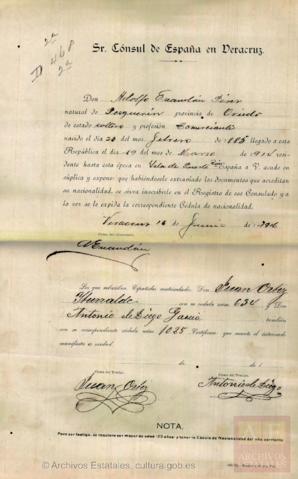 22
D 468
22
Sr. Cónsul de España en Veracruz.
Don Adolfo
natural de provincia de Oviedo
de estado soltero y profesión Comerciante
nacido el día 20 del mes Febrero de 1885 llegado a esta
República el día 19 del mes de Marzo de
hasta esta época en España a V. acude en
súplica y expone: que habiéndosele extraviado los documentos que acreditan
su nacionalidad, se sirva inscribirle en el Registro de ese Consulado y a
la vez se le expida la correspondiente Cédula de nacionalidad.
Veracruz 16 de Junio de
Los que subscriben Españoles matriculados Don Juan Ortiz
con su cédula núm 634 y Don
Antonio de Diego García también
con su correspondiente cédula núm 1025 Certifican que cuanto el interesado
manifiesta es verdad.
de de 1
Firma del Testigo. Firma del Testigo.
Juan Ortiz Antonio de Diego
NOTA.
Para ser testigo, se requiere ser mayor de edad (23 años) y tener la Cédula de Nacionalidad del año corriente.
ARCHIVOS
© Archivos Estatales, cultura.gob.es